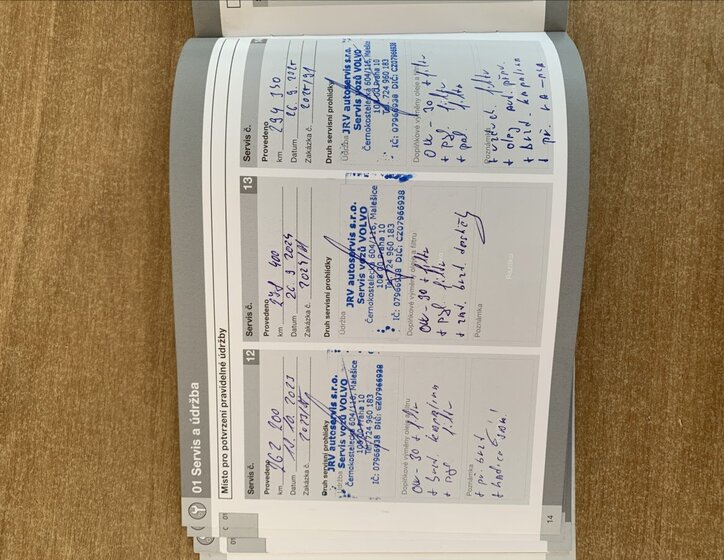 01 Servis a údržba
Místo pro potvrzení pravidelné údržby
Servis č. 12
Provedeno
km 262 200
Datum 11. 10. 2023
Zakázka č.
Druh servisní prohlídky
Údržba
JRV autoservis s.r.o.
Servis vozů VOLVO
Černokostelecká 604/116, Malešice
108 00 Praha 10
Tel. 724 960 183
IČ: 07966938 DIČ: CZ07966938
Doplňkové výměny oleje a filtru
+ brzd. kapalinu
+ pyl. filtr
Poznámka
+ př. brzd.
+ hadice
Servis č. 13
Provedeno
km 400
Datum 26. 9. 2024
Zakázka č.
Druh servisní prohlídky
Údržba
JRV autoservis s.r.o.
Servis vozů VOLVO
Černokostelecká 604/116, Malešice
108 00 Praha 10
Tel. 724 960 183
IČ: 07966938 DIČ: CZ07966938
Doplňkové výměny oleje a filtru
- 30 + filtr
+ pyl. filtr
+ zad. brzd. destičky
Poznámka
Razítko
Servis č.
Provedeno
km 294 350
Datum 26. 9. 2025
Zakázka č. 2025/91
Druh servisní prohlídky
Údržba
JRV autoservis s.r.o.
Servis vozů VOLVO
Černokostelecká 604/116, Malešice
108 00 Praha 10
Tel. 724 960 183
IČ: 07966938 DIČ: CZ07966938
Doplňkové výměny oleje a filtru
- 30 + filtr
+ pyl. filtr
+ pal. filtr
Poznámka
+ vzduch. filtr
+ brzd. kapalina
14